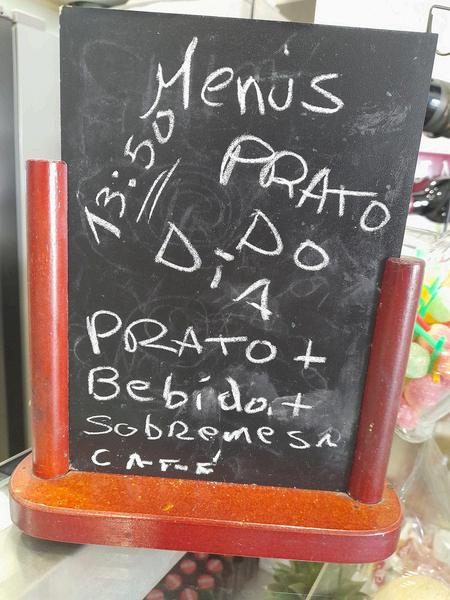 Menús
13:50
PRATO
DO
DiA
PRATO +
Bebida +
SOBREMESA
CAFÉ